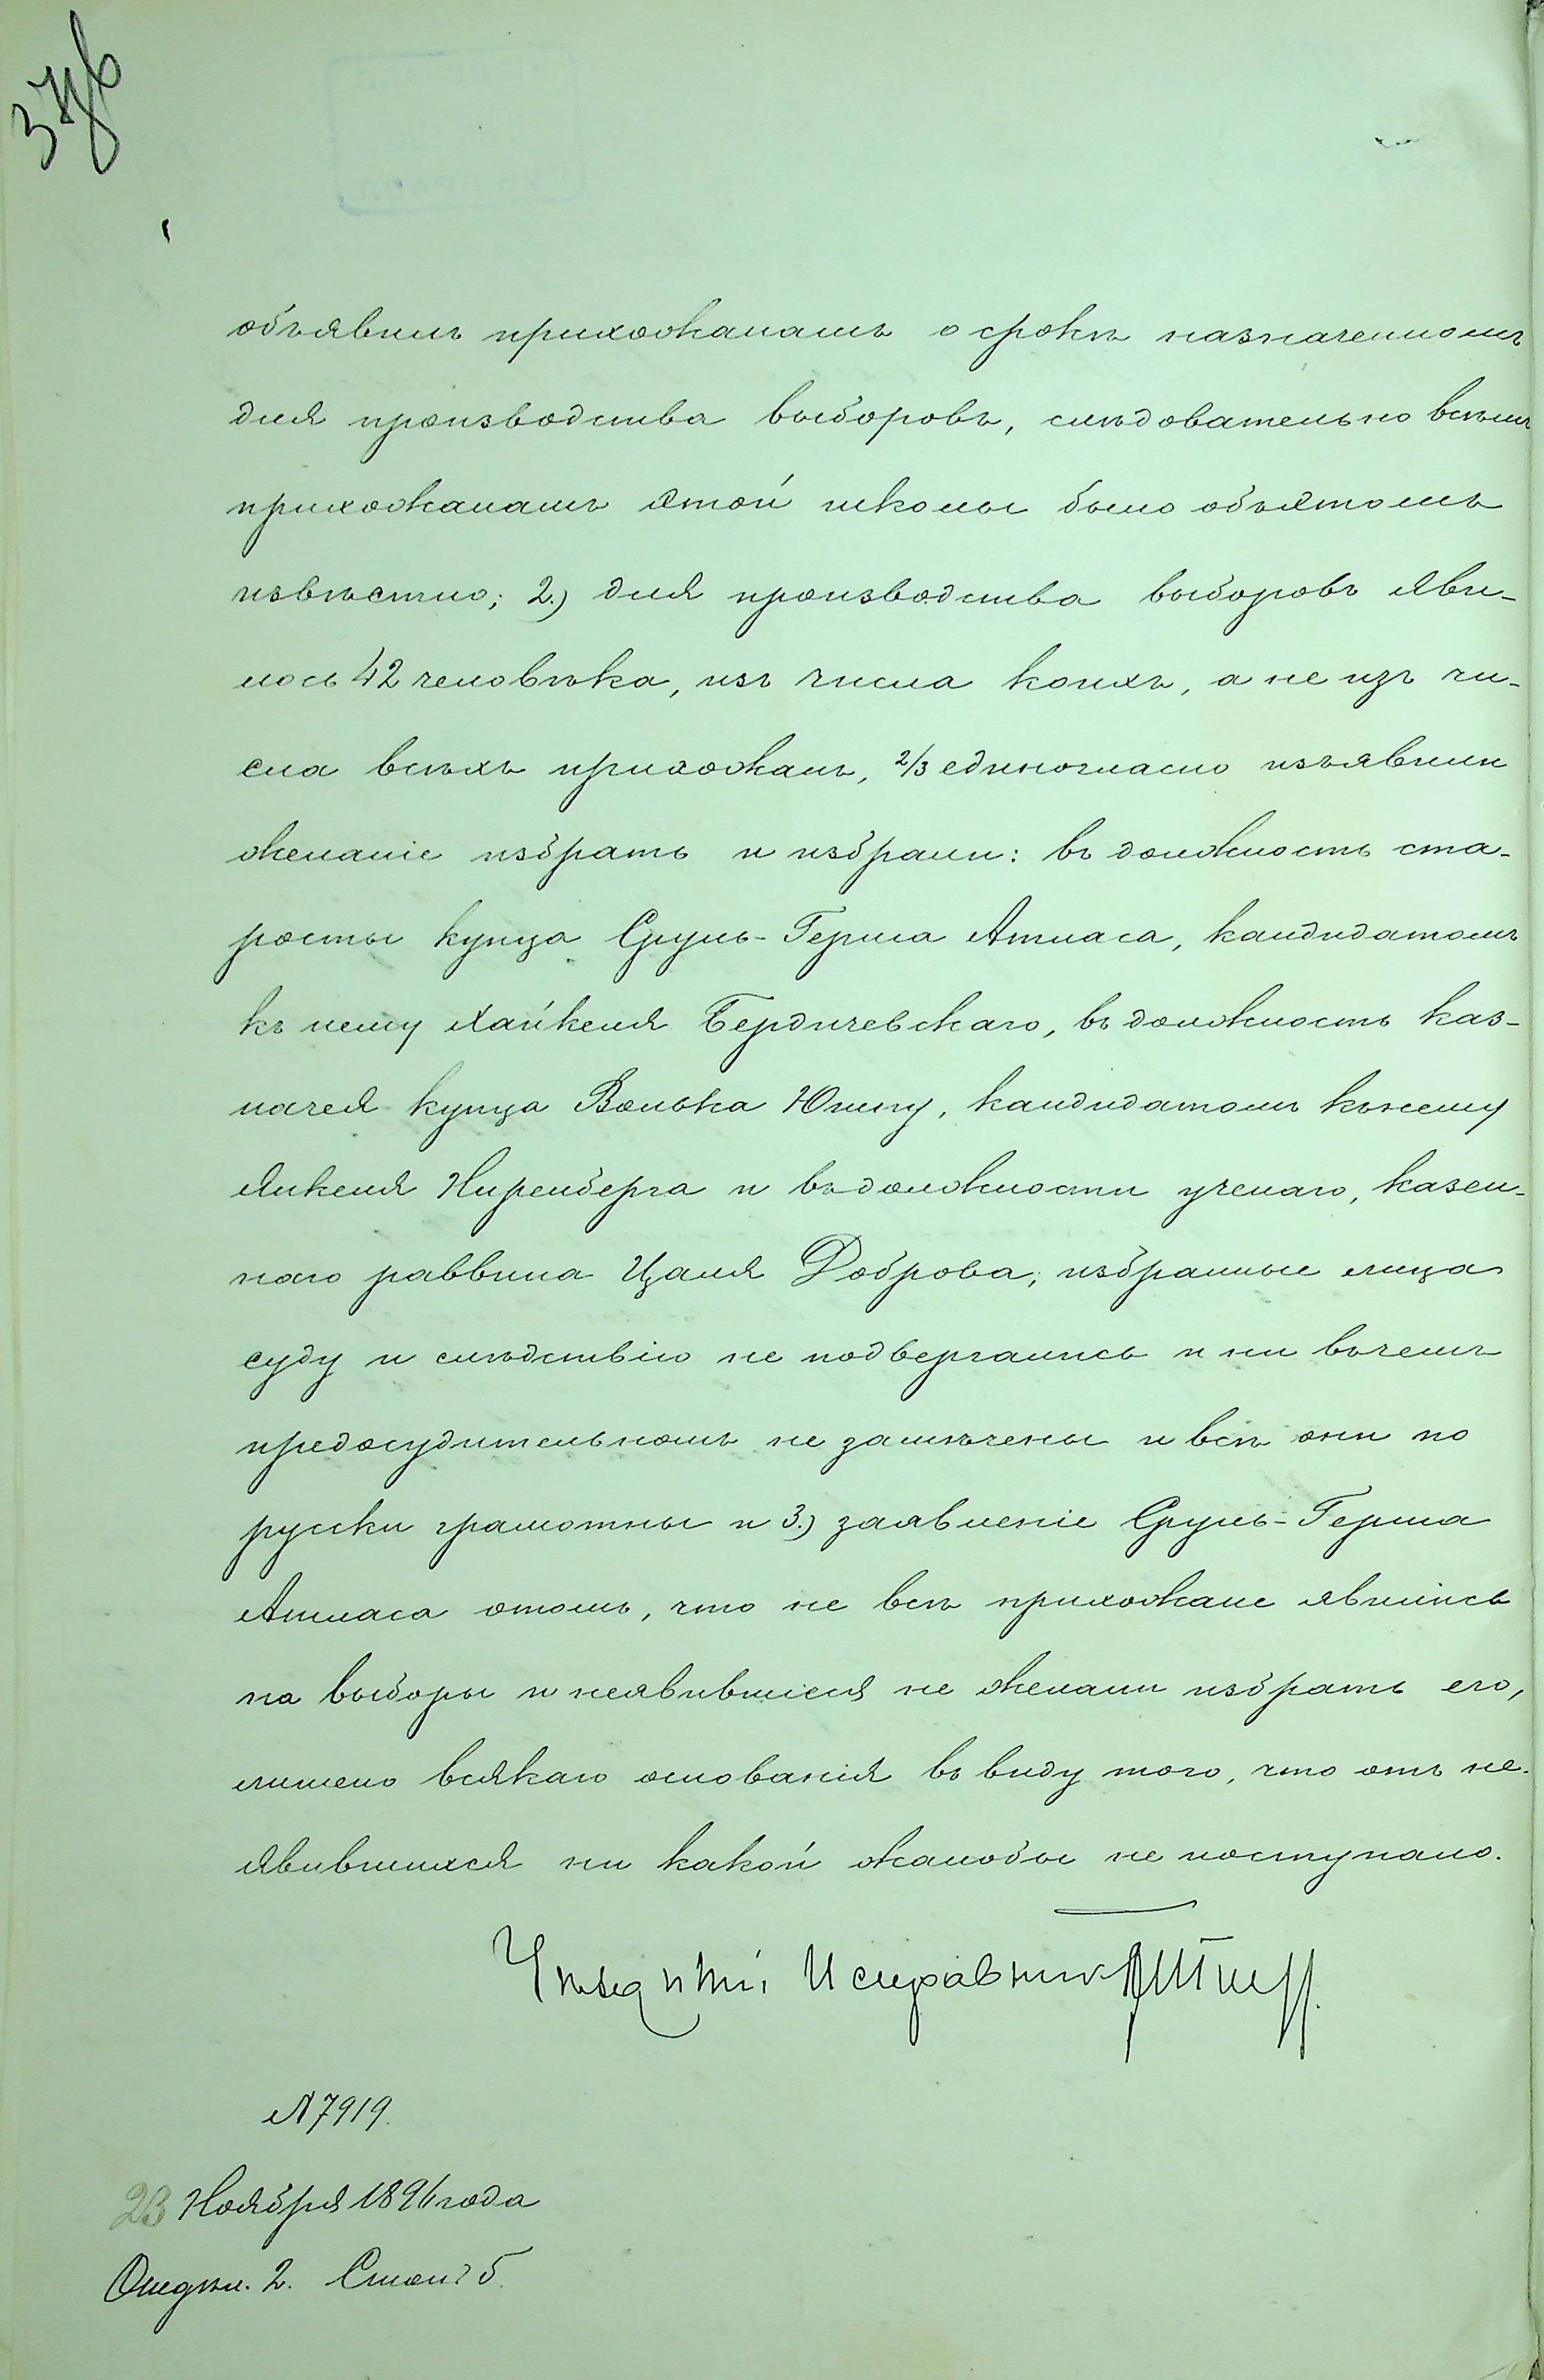 37об
объявилъ прихожанамъ о срокѣ назначенномъ
для производства выборовъ, слѣдовательно всѣмъ
прихожанамъ этой школы было объэтомъ
извѣстно; 2.) для производства выборовъ яви-
лось 42 человѣка, изъ числа коихъ, а не изъ чи-
сла всѣхъ прихожанъ, 2/3 единогласно изъявили
желаніе избрать и избрали: въ должность ста-
росты купца Сруль-Герша Атласа, кандидатомъ
къ нему Хайкеля Бердичевскаго, въ должность каз-
начея купца Волька Юшпу, кандидатомъ къ нему
Янкеля Ниренберга и въ должности ученаго, казен-
наго раввина Цаля Доброва; избранные лица
суду и слѣдствію не подвергались и ни въ чемъ
предосудительномъ не замѣчены и всѣ они по
русски грамотны и 3.) заявленіе Сруль-Герша
Атласа отомъ, что не всѣ прихожане явились
на выборы и неявившіеся не желали избрать его,
лишено всякаго основанія въ виду того, что отъ не-
явившихся ни какой жалобы не поступало.
Уѣздный Исправникъ
№ 7919.
23 Ноября 1896 года
Отдѣл. 2. Столъ 5.